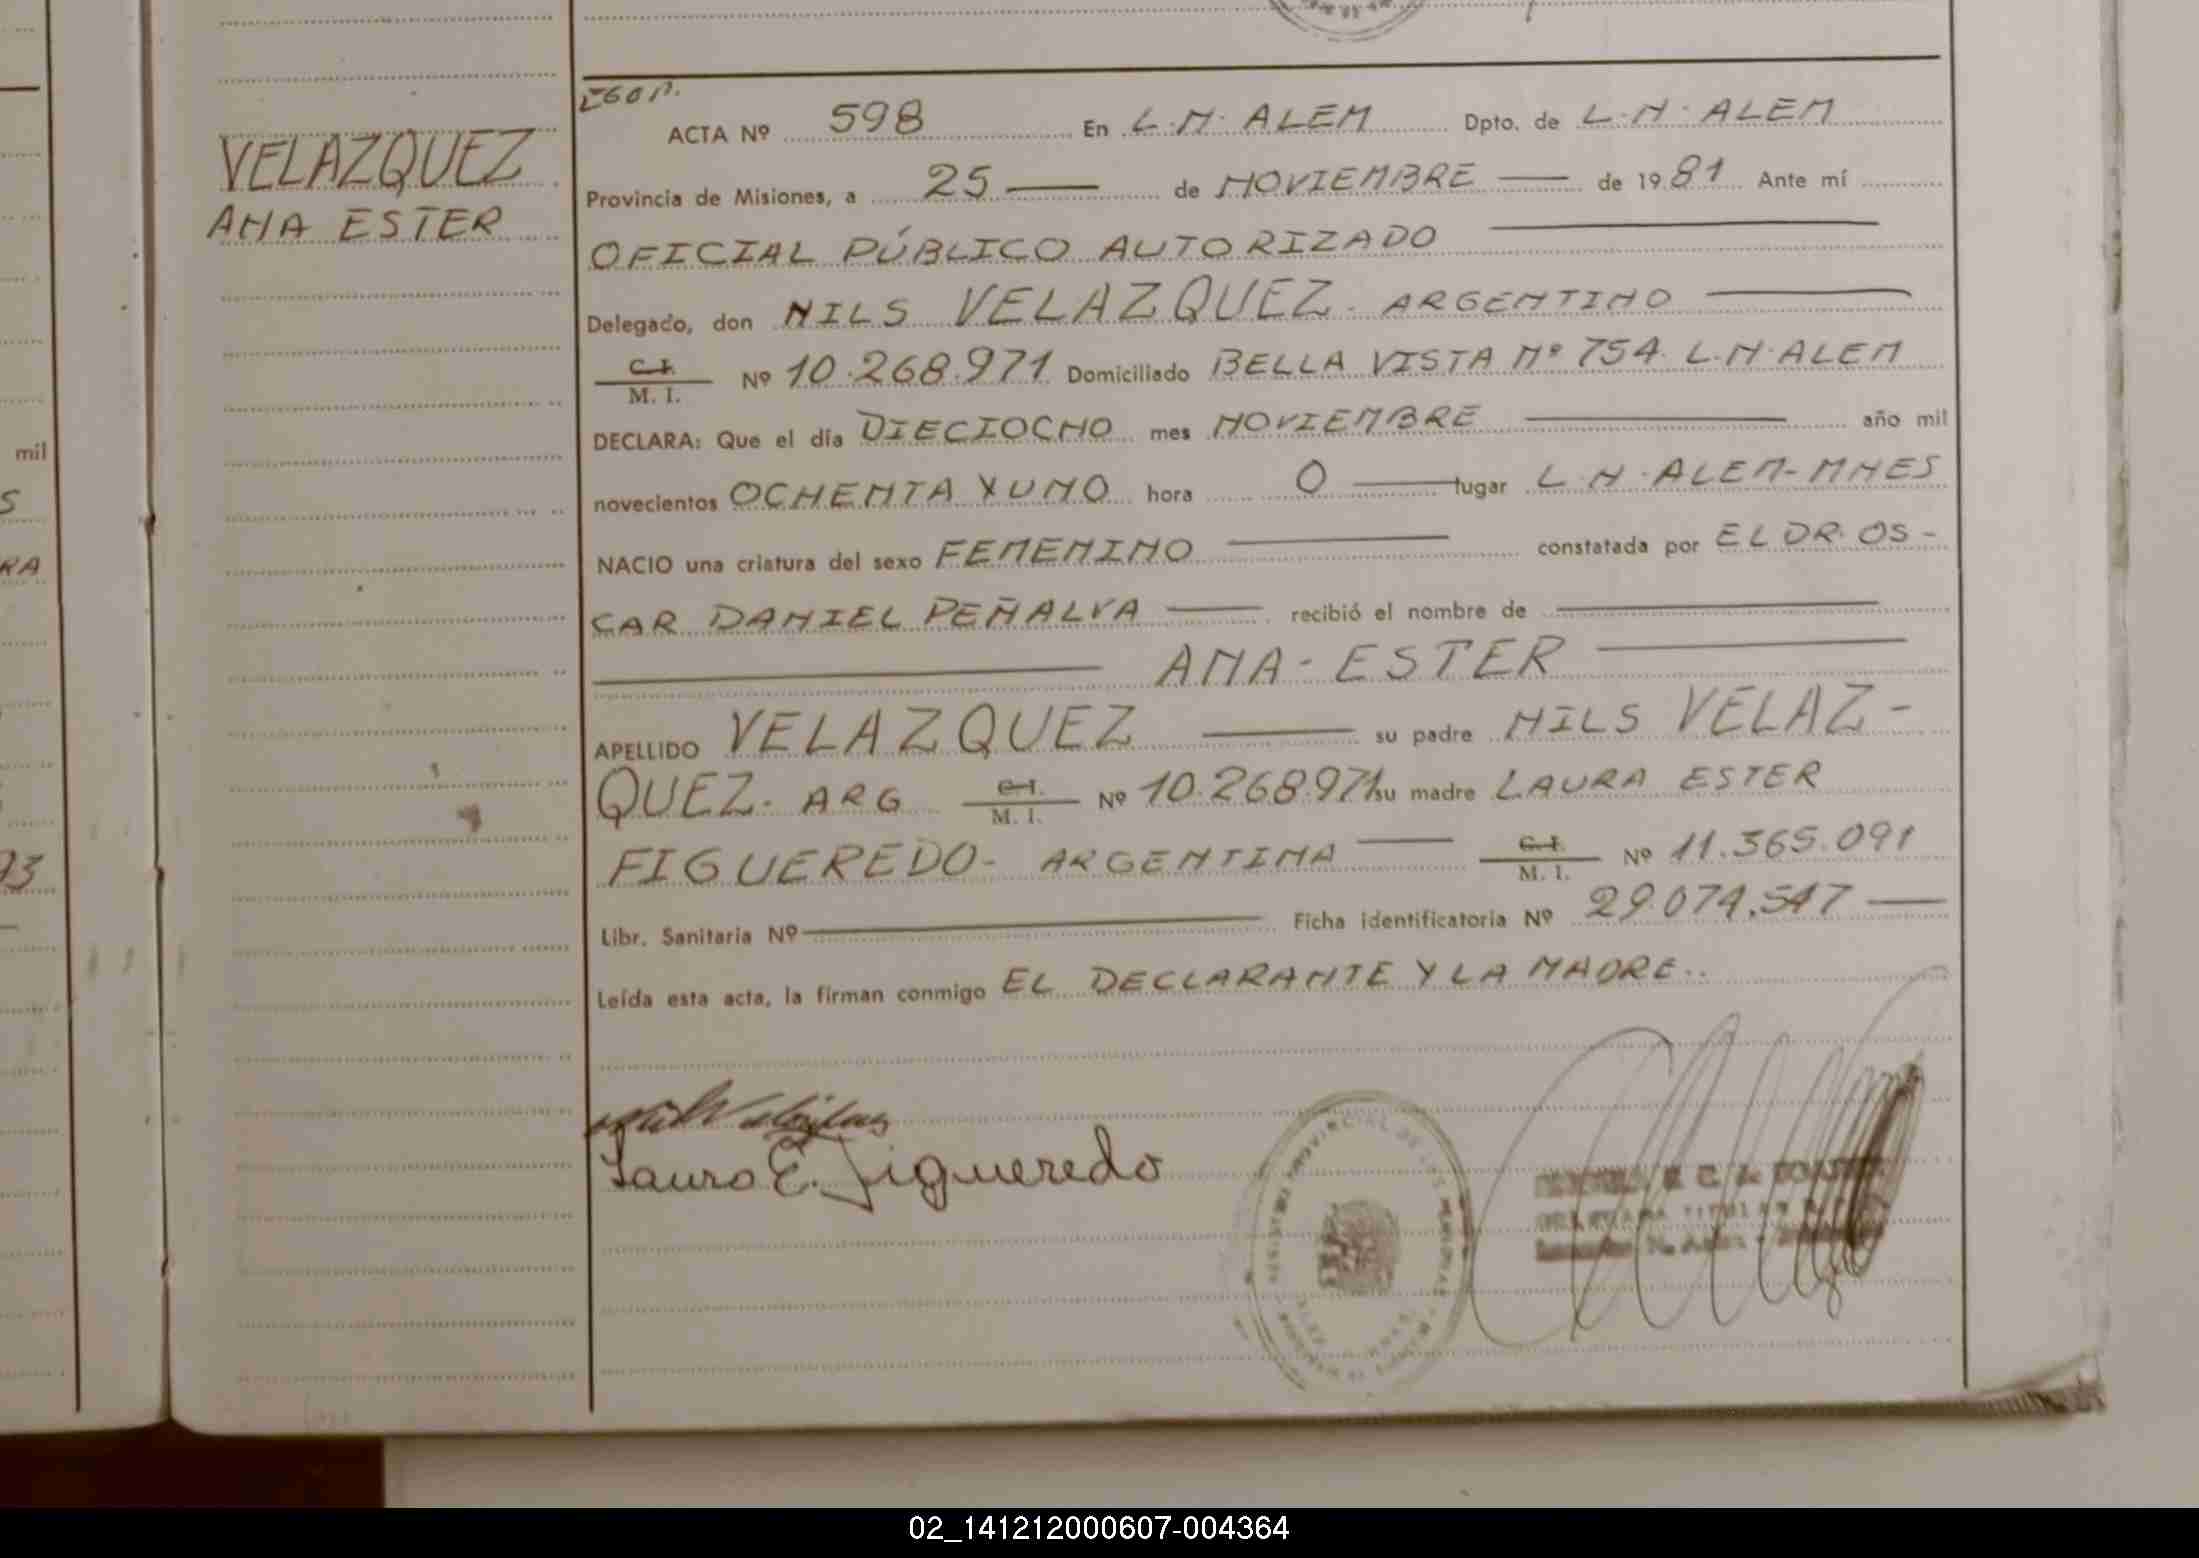 VELAZQUEZ
ANA ESTER
mil
S
RA
93
ACTA Nº 598 En L.N. ALEM Dpto. de L.N. ALEM
Provincia de Misiones, a 25 — de NOVIEMBRE — de 1981 Ante mí
OFICIAL PÚBLICO AUTORIZADO —
Delegado, don NILS VELAZQUEZ. ARGENTINO —
C. I.
M. I. Nº 10.268.971 Domiciliado BELLA VISTA Nº 754. L.N. ALEM
DECLARA: Que el día DIECIOCHO mes NOVIEMBRE — año mil
novecientos OCHENTA Y UNO hora 0 — lugar L.N. ALEM-MNES
NACIO una criatura del sexo FEMENINO — constatada por EL DR. OS-
CAR DANIEL PEÑALVA — recibió el nombre de —
— ANA - ESTER —
APELLIDO VELAZQUEZ — su padre NILS VELAZ-
QUEZ. ARG C. I.
M. I. Nº 10.268.971 su madre LAURA ESTER
FIGUEREDO- ARGENTINA — C. I.
M. I. Nº 11.365.091
Libr. Sanitaria Nº — Ficha identificatoria Nº 29.074.547 —
Leída esta acta, la firman conmigo EL DECLARANTE Y LA MADRE..
Laura E. Figueredo
02_141212000607-004364